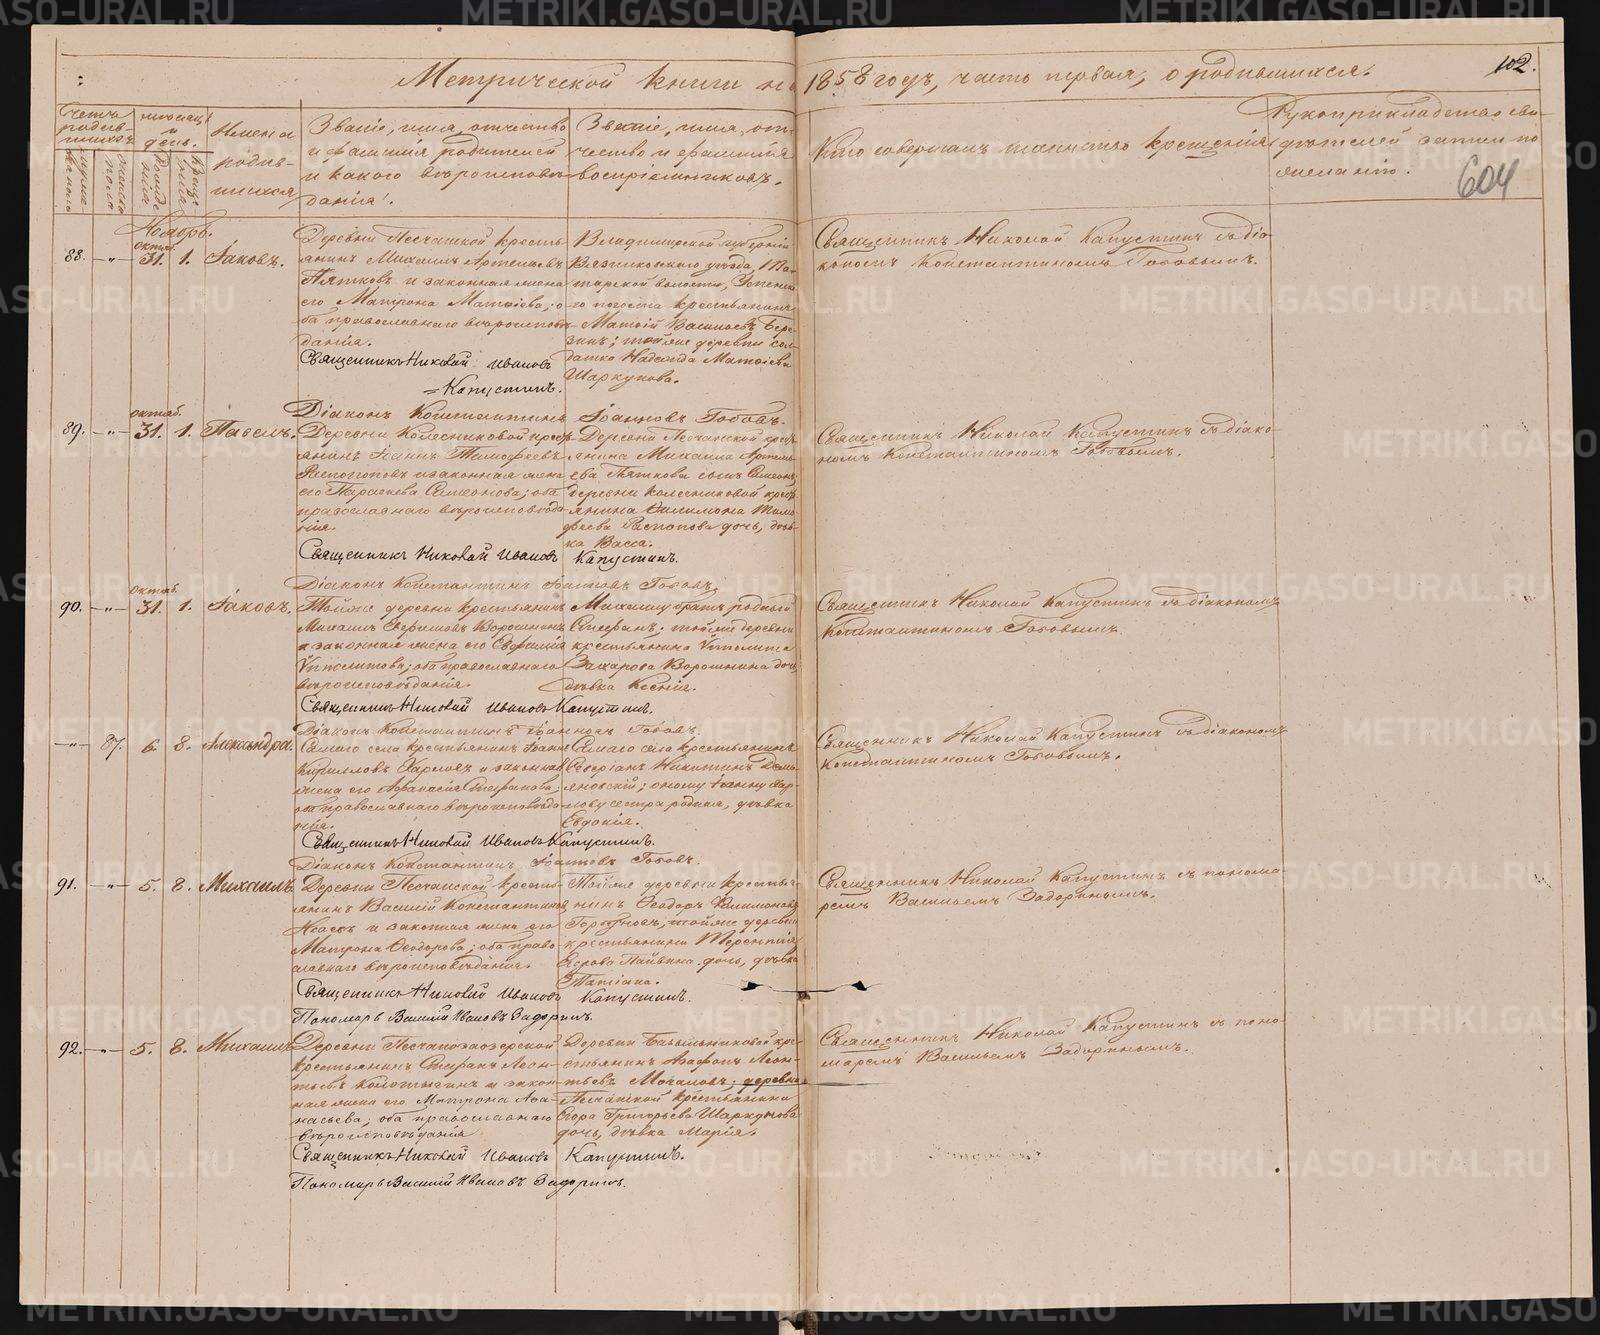 Метрической книги на 1858 годъ, часть первая, о родившихся.
102.
604
Счетъ родив-
шихся
мужеска
пола
женска
пола
Мѣсяцъ
и
день.
Имена
родив-
шихся
Званіе, имя, отчество
и фамилія родителей
и какого вѣроисповѣ-
данія.
Званіе, имя, от-
чество и фамилія
воспріемниковъ.
Кто совершалъ таинство крещенія
Рукоприкладство сви-
дѣтелей записи по
желанію.
Ноябрь.
88. -"- октяб. 31. 1. Іаковъ.
Деревни Песчанской кресть-
янинъ Михаилъ Артемьевъ
Пятковъ и законная жена
его Матрона Матѳіева; о-
ба православнаго вѣроисповѣ-
данія.
Священникъ Николай Ивановъ
=Капустинъ.
Діаконъ Константинъ Іоанновъ Гобовъ.
Владимирской губерніи
Вязниковскаго уѣзда,
волости,
го погоста крестьянинъ
Матѳій Васильевъ Бере-
зинъ; тойже деревни сол-
датка Надежда Матѳіева
Шаркунова.
Священникъ Николай Капустинъ съ діа-
кономъ Константиномъ Гобовымъ.
89. -"- октяб. 31. 1. Павелъ.
Деревни Колесниковой крест-
янинъ Іоаннъ Тимоѳеевъ
Распоповъ и законная жена
его Параскева Симеонова; оба
православнаго вѣроисповѣда-
нія.
Священникъ Николай Ивановъ Капустинъ.
Діаконъ Константинъ Іоанновъ Гобовъ.
Деревни Песчанской крест-
янина Михаила Артемь-
ева Пяткова сынъ Симеонъ;
деревни Колесниковой крест-
янина Филимона Тимо-
ѳеева Распопова дочь, дѣв-
ка Васса.
Священникъ Николай Капустинъ съ діако-
номъ Константиномъ Гобовымъ.
90. -"- октяб. 31. 1. Іаковъ.
Тойже деревни крестьянинъ
Михаилъ Ворошнинъ
и законная жена его Евфимія
Ѵпполитова; оба православнаго
вѣроисповѣданія.
Священникъ Николай Ивановъ Капустинъ.
Діаконъ Константинъ Іоанновъ Гобовъ.
Михаилу братъ родный
Стефанъ; тойже деревни
крестьянина Ѵпполита
Захарова Ворошнина дочь
дѣвка Ксенія.
Священникъ Николай Капустинъ съ діакономъ
Константиномъ Гобовымъ.
-"- 87. 6. 8. Александра.
Самаго села крестьянинъ Іоаннъ
Кирилловъ Харловъ и законная
жена его Аѳанасія Стефанова;
оба православнаго вѣроисповѣда-
нія.
Священникъ Николай Ивановъ Капустинъ.
Діаконъ Константинъ Іоанновъ Гобовъ.
Самаго села крестьянинъ
Северіанъ Никитинъ Демь-
яновскій; оному Іоанну Хар-
лову сестра родная, дѣвка
Евдокія.
Священникъ Николай Капустинъ съ діакономъ
Константиномъ Гобовымъ.
91. -"- 5. 8. Михаилъ
Деревни Песчанской кресть-
янинъ Василій Константиновъ
и законная жена его
Матрона Ѳеодорова; оба право-
славнаго вѣроисповѣданія.
Священникъ Николай Ивановъ Капустинъ.
Пономарь Василій Ивановъ Задоринъ.
Тойже деревни крестья-
нинъ Ѳеодоръ Филимоновъ
Горбуновъ, тойже деревни
крестьянина Терентія
Егорова Пайвина дочь, дѣвка
Татіана.
Священникъ Николай Капустинъ съ понома-
ремъ Васильемъ Задоринымъ.
92. -"- 5. 8. Михаилъ
Деревни Песчаноозерской
крестьянинъ Стефанъ Леон-
тьевъ Колотыгинъ и закон-
ная жена его Матрона Аѳа-
насьева; оба православнаго
вѣроисповѣданія.
Священникъ Николай Ивановъ Капустинъ.
Пономарь Василій Ивановъ Задоринъ.
Деревни кре-
стьянинъ Агаѳонъ Леон-
тьевъ Мочаловъ; деревни
Песчанской крестьянина
Егора Григорьева Шаркунова
дочь, дѣвка Марія.
Священникъ Николай Капустинъ съ поно-
маремъ Васильемъ Задоринымъ.
METRIKI.GASO-URAL.RU